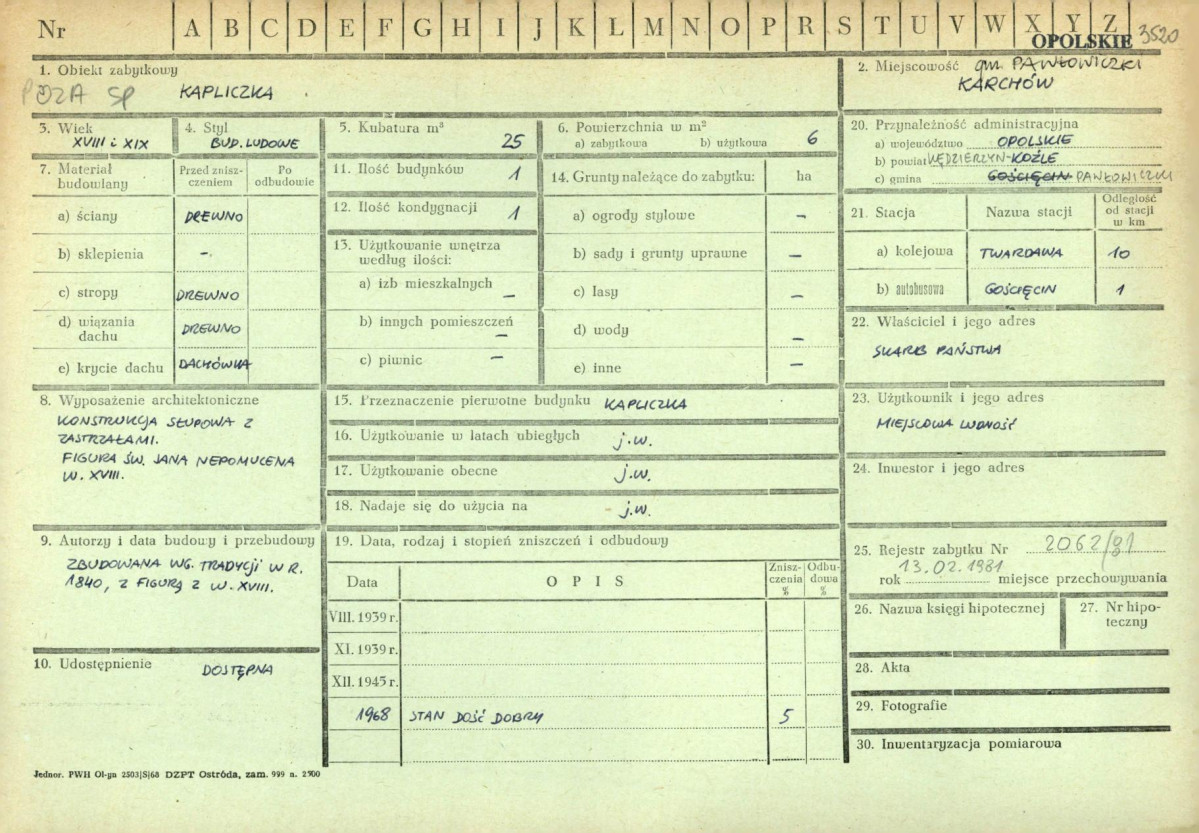 Nr A B C D E F G H I J K L Ł M N O P R S T U V W X Y Z
OPOLSKIE 3520
1. Obiekt zabytkowy
POZA SP KAPLICZKA
2. Miejscowość gm. PAWŁOWICZKI
KARCHÓW
3. Wiek
XVIII i XIX
4. Styl
BUD. LUDOWE
5. Kubatura m³
25
6. Powierzchnia w m²
a) zabytkowa b) użytkowa 6
20. Przynależność administracyjna
a) województwo OPOLSKIE
b) powiat KĘDZIERZYN-KOŹLE
c) gmina GOŚCIĘCIN PAWŁOWICZKI
7. Materiał
budowlany
Przed znisz-
czeniem
Po
odbudowie
a) ściany DREWNO
b) sklepienia -
c) stropy DREWNO
d) wiązania
dachu DREWNO
e) krycie dachu DACHÓWKA
11. Ilość budynków 1
12. Ilość kondygnacji 1
13. Użytkowanie wnętrza
według ilości:
a) izb mieszkalnych
-
b) innych pomieszczeń
-
c) piwnic -
14. Grunty należące do zabytku: ha
a) ogrody stylowe -
b) sady i grunty uprawne -
c) lasy -
d) wody -
e) inne -
21. Stacja Nazwa stacji
Odległość
od stacji
w km
a) kolejowa TWARDAWA 10
b) autobusowa GOŚCIĘCIN 1
22. Właściciel i jego adres
SKARB PAŃSTWA
8. Wyposażenie architektoniczne
KONSTRUKCJA SŁUPOWA Z
ZASTRZAŁAMI.
FIGURA ŚW. JANA NEPOMUCENA
W. XVIII.
15. Przeznaczenie pierwotne budynku KAPLICZKA
16. Użytkowanie w latach ubiegłych j.w.
17. Użytkowanie obecne j.w.
18. Nadaje się do użycia na j.w.
23. Użytkownik i jego adres
MIEJSCOWA LUDNOŚĆ
24. Inwestor i jego adres
9. Autorzy i data budowy i przebudowy
ZBUDOWANA WG. TRADYCJI W R.
1840, Z FIGURĄ Z W. XVIII.
19. Data, rodzaj i stopień zniszczeń i odbudowy
Data OPIS
Znisz-
czenia
%
Odbu-
dowa
%
VIII. 1939 r.
XI. 1939 r.
XII. 1945 r.
1968 STAN DOŚĆ DOBRY 5
25. Rejestr zabytku Nr 2062/81
13.02.1981
rok miejsce przechowywania
26. Nazwa księgi hipotecznej
27. Nr hipo-
teczny
10. Udostępnienie DOSTĘPNA
28. Akta
29. Fotografie
30. Inwentaryzacja pomiarowa
Jednor. PWH Ol-yn 2503|S|68 DZPT Ostróda, zam. 999 n. 2500